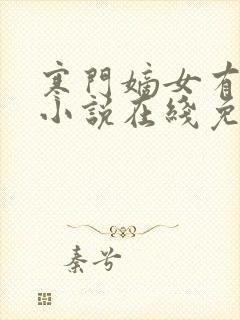 寒門嫡女有
小說在綫免
秦兮